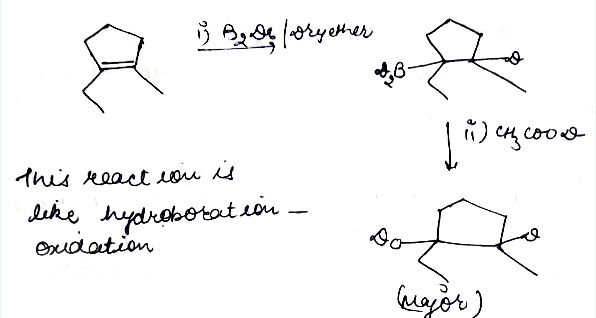 i) B2D6/dry ether
D2B
D
ii) CH3COOD
This reaction is
like hydroboration –
oxidation
DO
D
(Major)